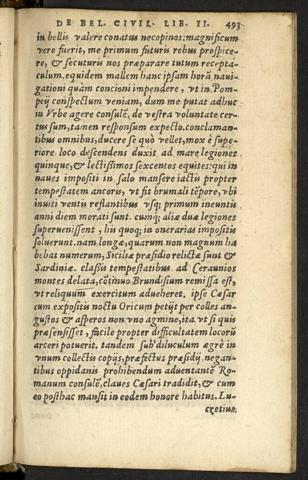 DE BEL. CIVIL. LIB. II. 493
in bellis valere conatus necopinos: magnificum
vero fuerit, me primum futuris rebus prospice-
re, & securitati nos præparare tutum recepta-
culum. equidem mallem hanc ipsam horā, naui-
gationi quam concioni impendere, vt in Pom-
peij conspectum veniam, dum me putat adhuc
in Vrbe agere consulē, de vestra voluntate cer-
tus sum, tamen responsum expecto. conclaman-
tibus omnibus, ducere se quò vellet, mox è supe-
riore loco descendens duxit ad mare legiones
quinque, & lectissimos sexcenos equites: qui in
naues impositi in salo mansere iactis propter
tempestatem ancoris, vt fit brumali tēpore, vbi
inuiti ventis restantibus vsq; primum ineuntis
anni diem morati sunt. cumq; aliæ duæ legiones
superuenissent, his quoq; in onerarias impositis
soluerunt. nam longæ, quarum non magnum ha
bebat numerum, Siciliæ præsidio relictæ sunt &
Sardiniæ. classis tempestatibus ad Ceraunios
montes delata, cōtinuo Brundisium remissa est,
vt reliquum exercitum adueheret. ipse Cæsar
cum expositis noctu Oricum petijt per colles an-
gustos & asperos non vno agmine, ita vt si quis
præsensisset, facile propter difficultatem locorū
arceri potuerit. tandem sub'diluculum ægrè in
vnum collectis copijs, præfectus præsidij, negan-
tibus oppidanis prohibendum aduentantē Ro-
manum consulē, claues Cæsari tradidit, & cum
eo posthac mansit in eodem honore habitus. Lu-
cretius